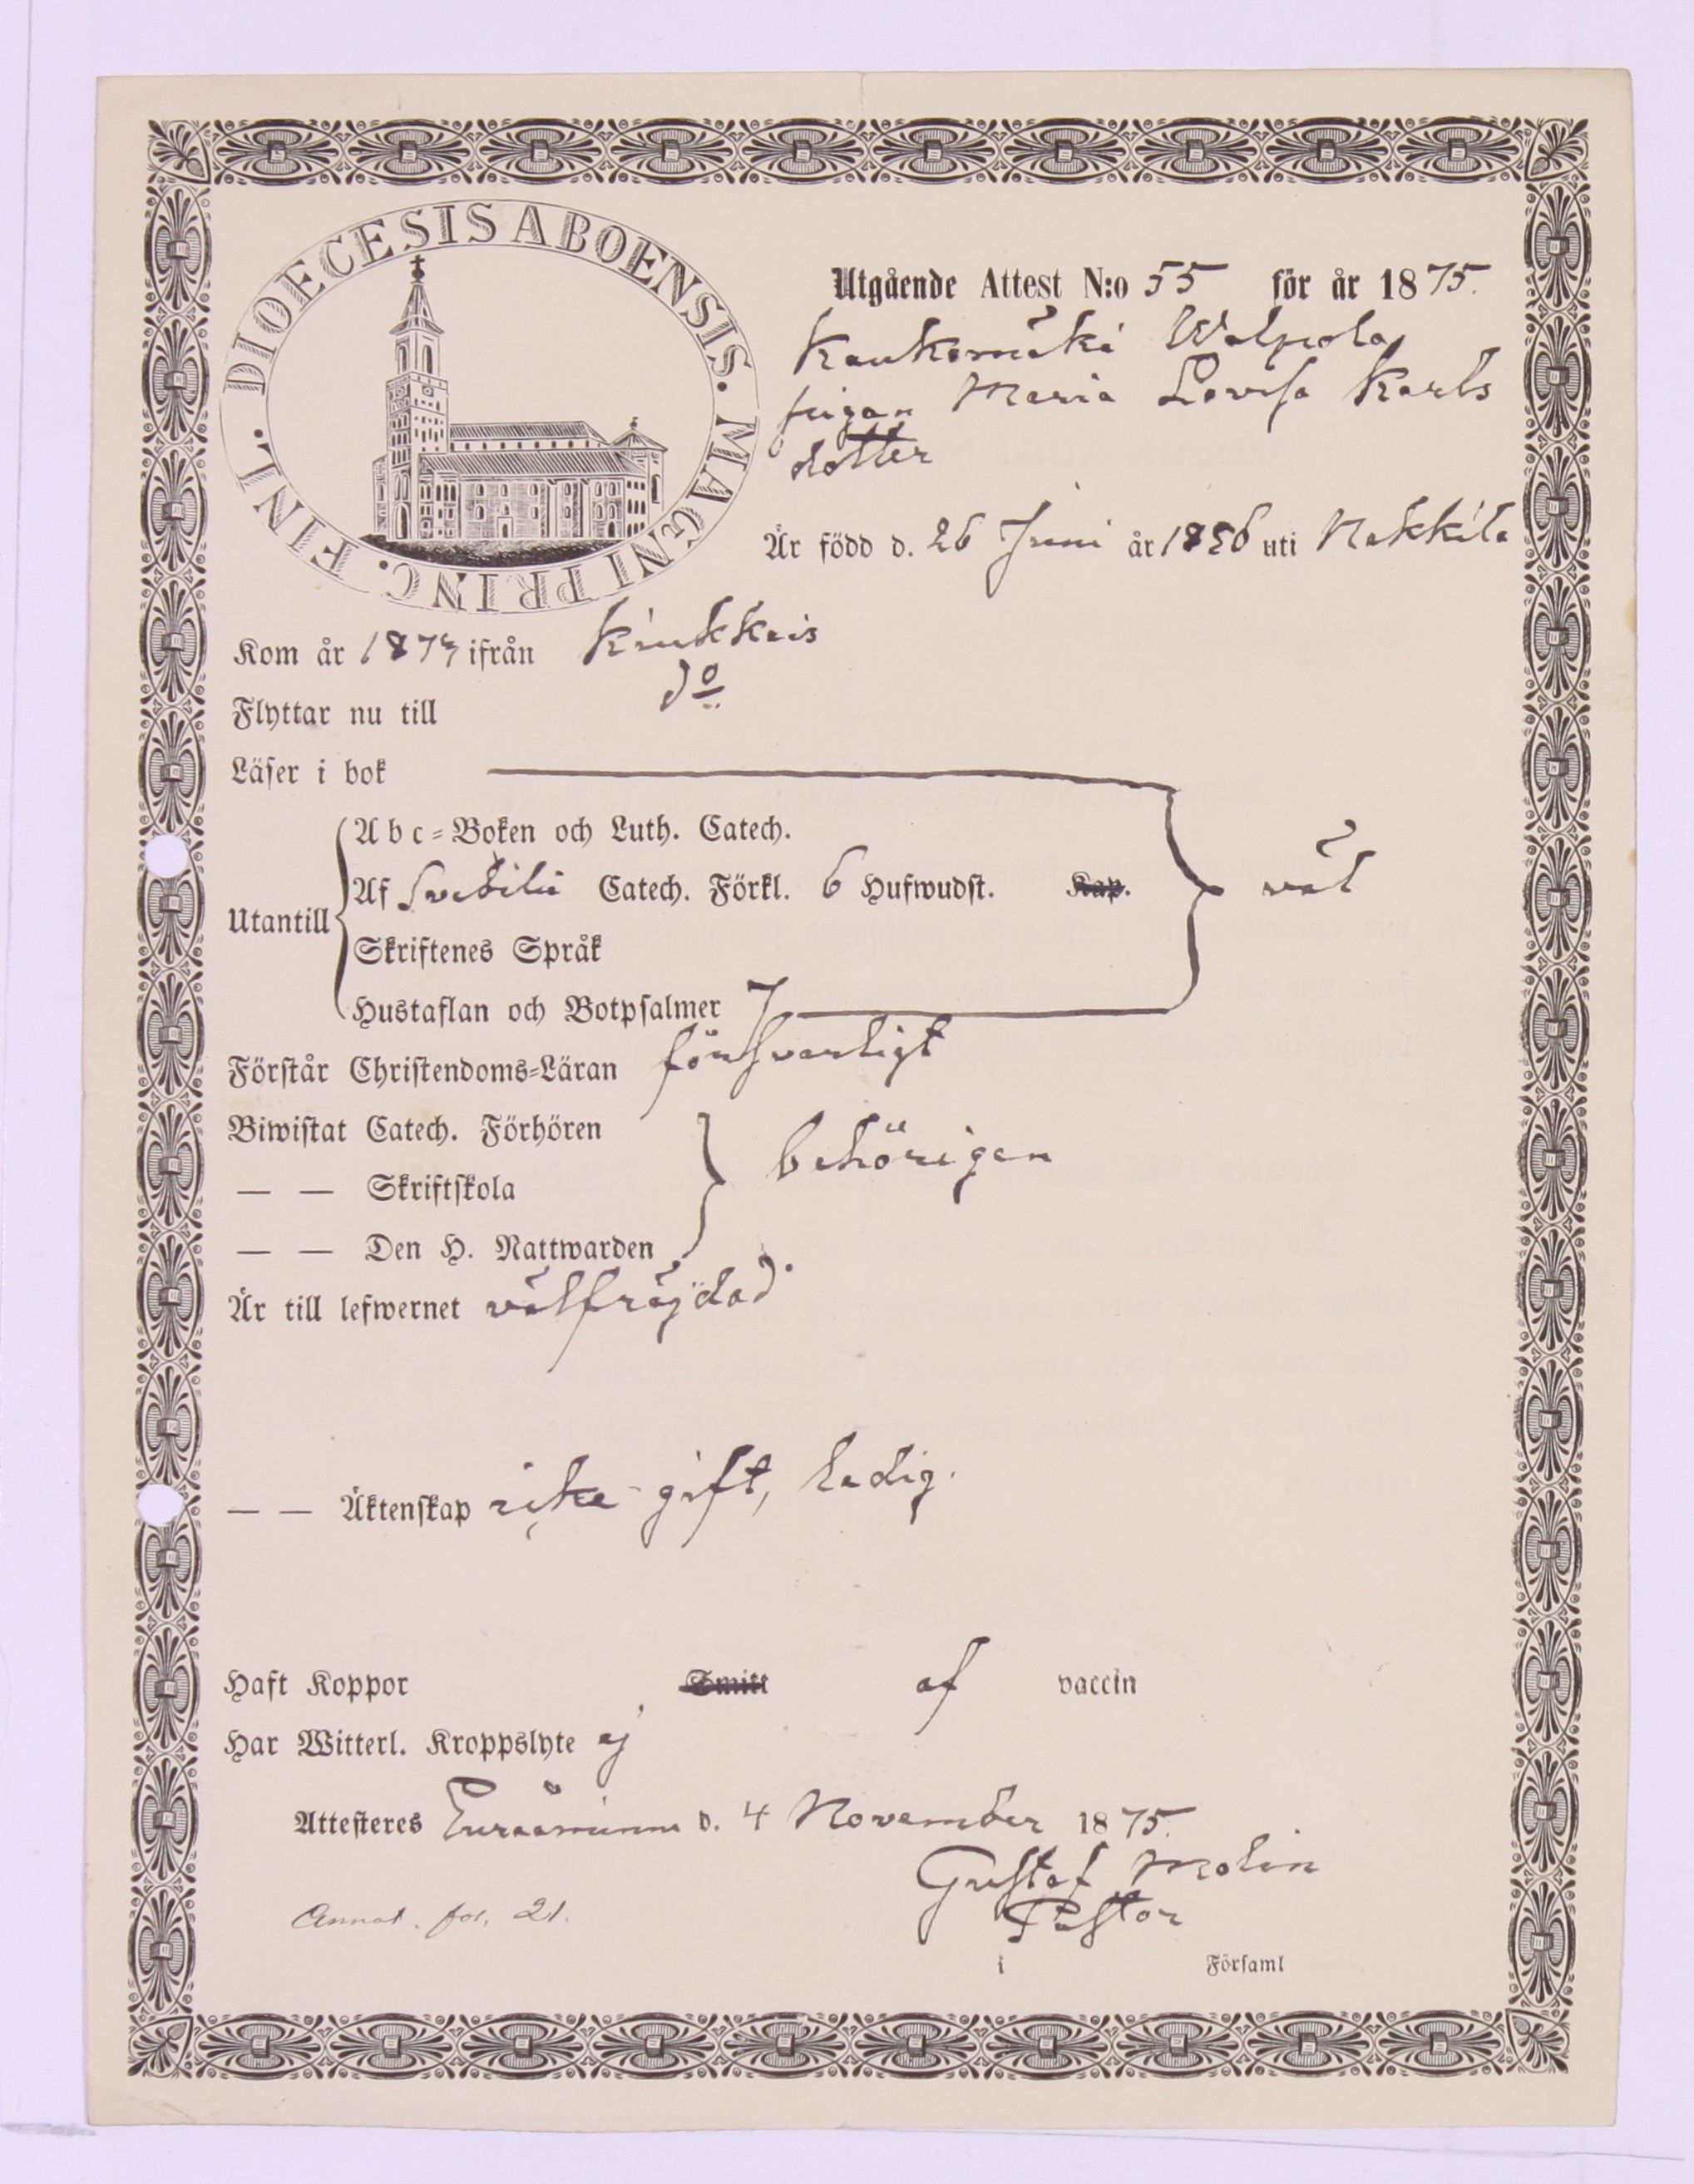 DIOECESIS ABOENSIS. MAGNI PRINC. FINL.
Utgående Attest N:o 55 för år 1875.
Kaukomäki Walpola
pigan Maria Lovisa Karls
dotter
Är född d. 26 Juni år 1856 uti Nakkila
Kom år 187 ifrån Kiukkais
Flyttar nu till do
Läser i bok
Abc-Boken och Luth. Catech.
Utantill Af Svebilii Catech. Förkl. 6 Hufwudst. Kap. väl
Skriftenes Språk
Hustaflan och Botpsalmer
Förstår Christendoms-Läran försvarligt
Biwistat Catech. Förhören
— — Skriftskola behörigen
— — Den H. Nattwarden
Är till lefwernet välfräjdad.
— — Äktenskap icke gift, ledig.
Haft Koppor Smitt af vaccin
Har Witterl. Kroppslyte ej
Attesteres Euraåminne d. 4 November 1875.
Gustaf Molin
Pastor
Annot. fol. 21.
i Församl